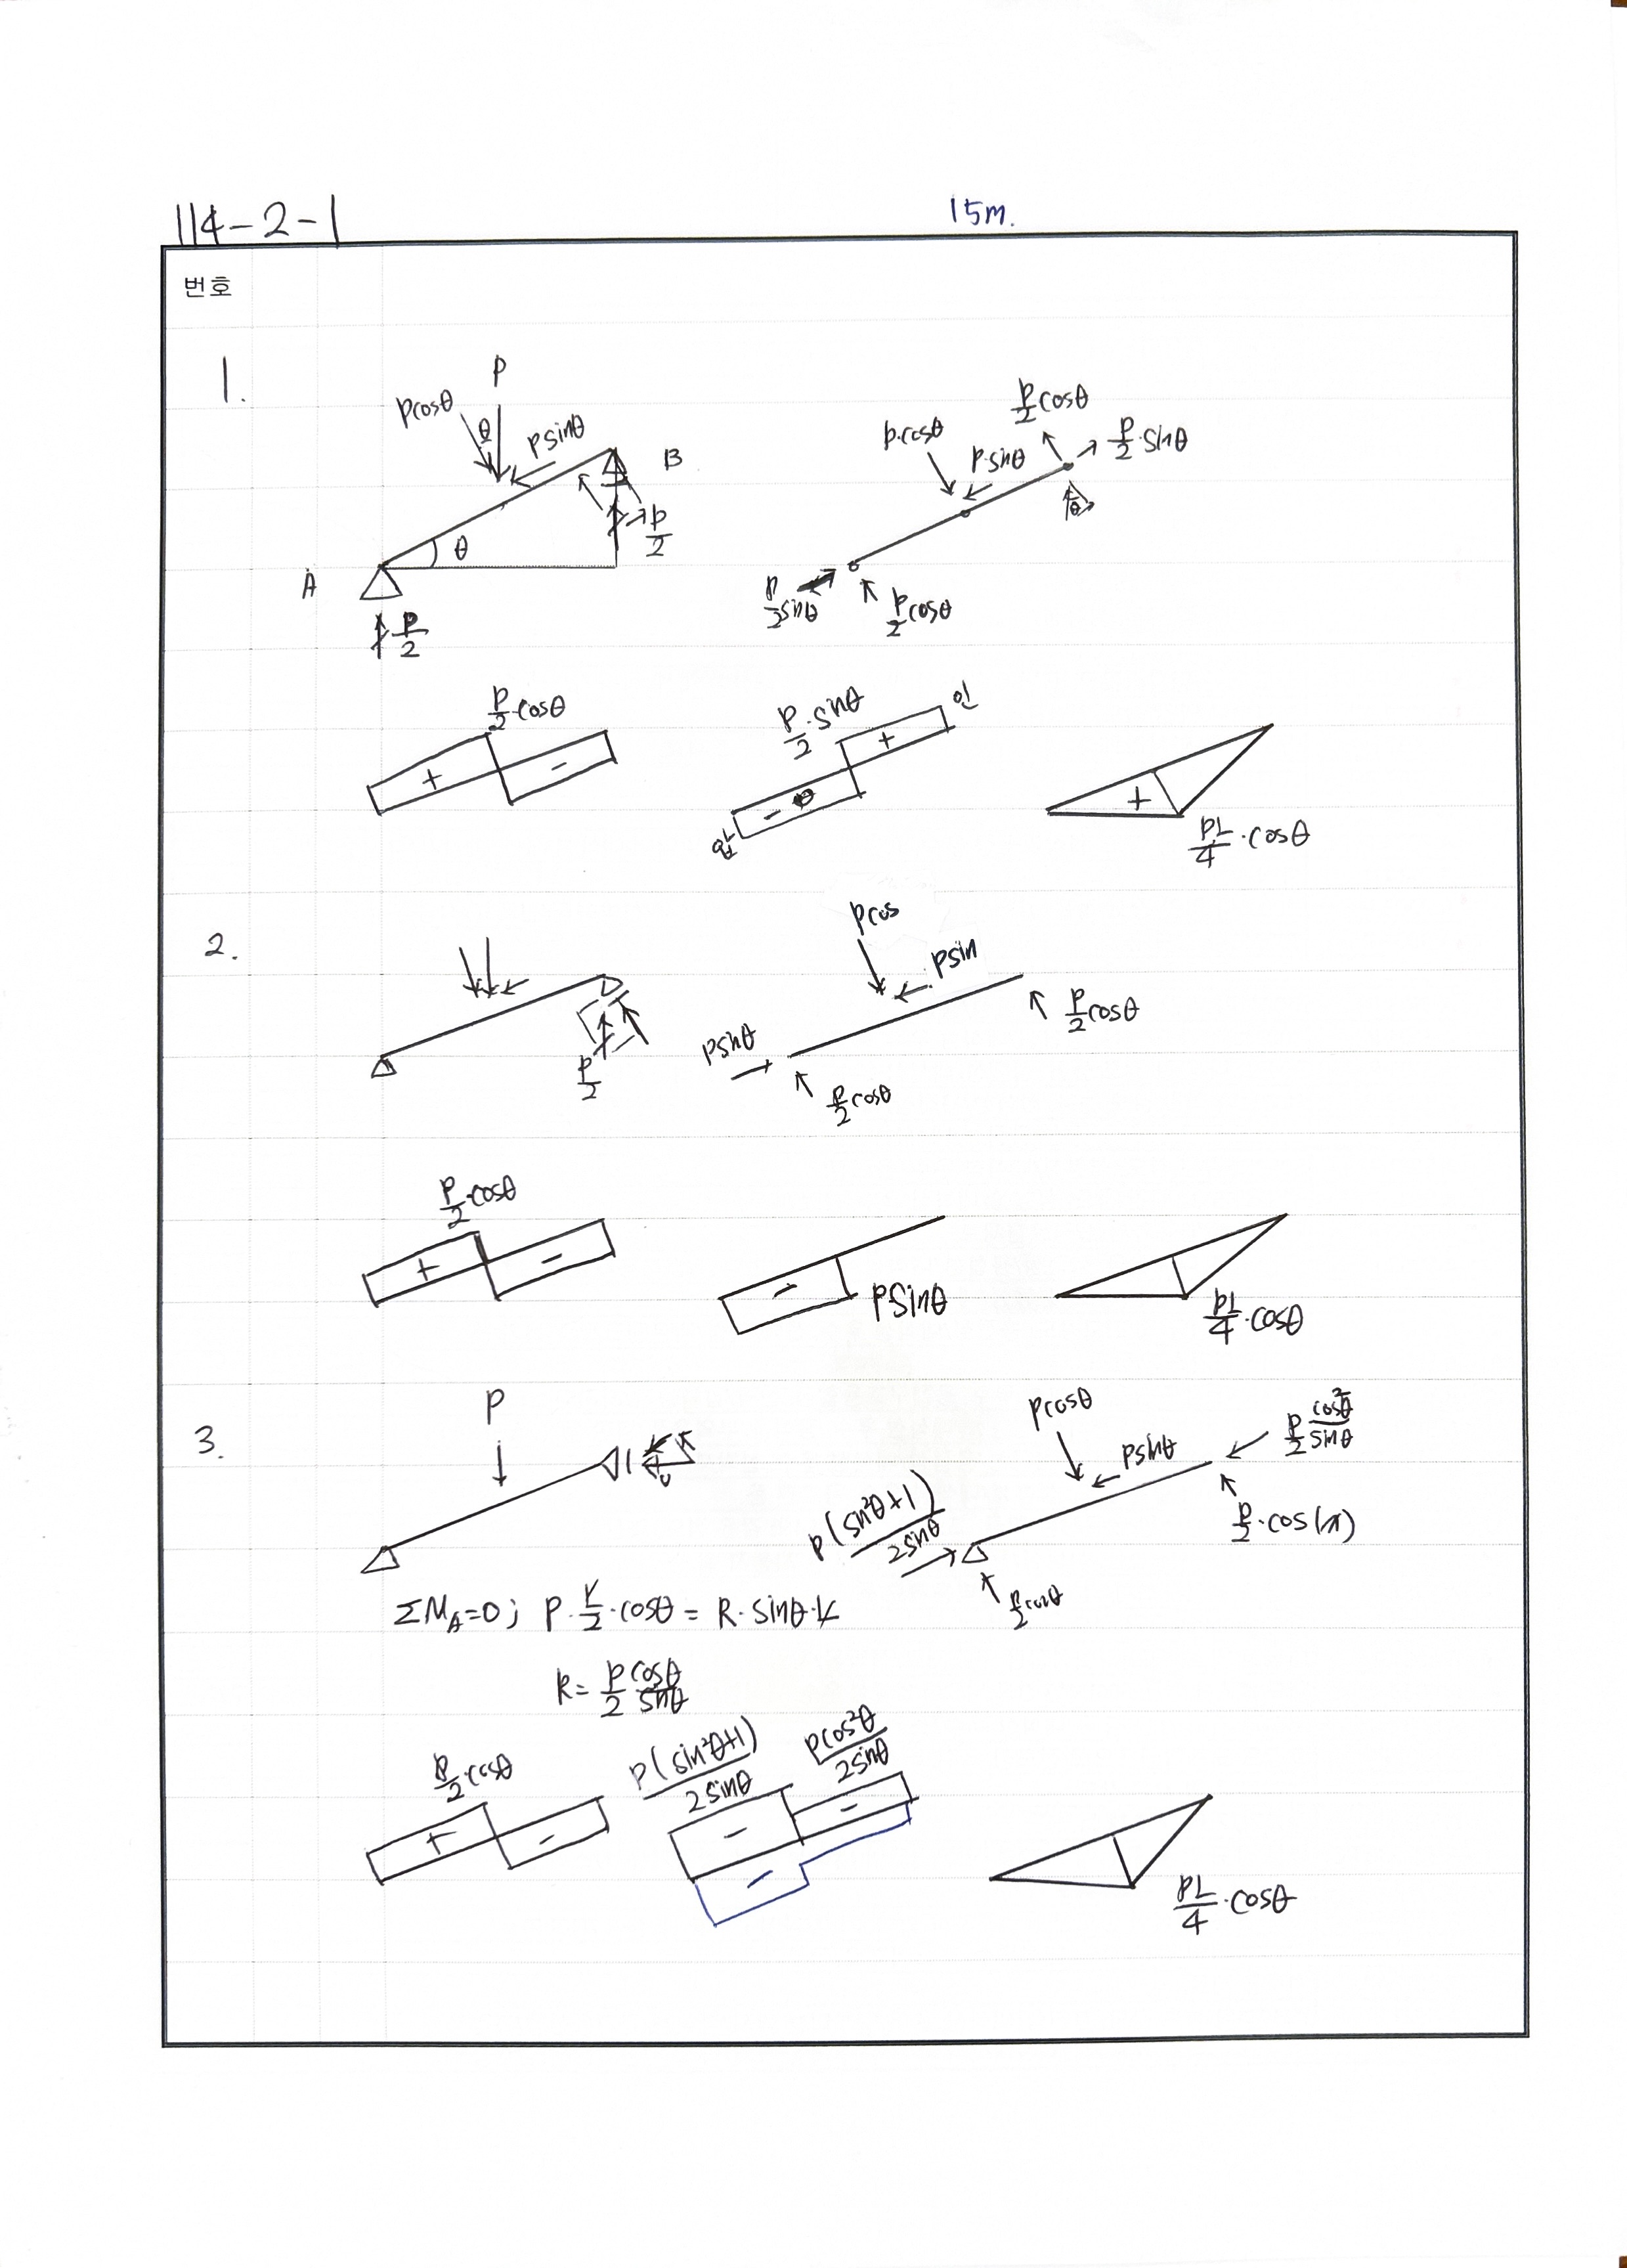 114-2-1
15m.
번호
1.
P
Pcosθ
θ
Psinθ
B
P/2
θ
A
P/2
P/2 cosθ
P·cosθ
P·sinθ
P/2·sinθ
θ
P/2 sinθ
P/2 cosθ
P/2·cosθ
+
-
P/2·sinθ
인
+
-
압
+
PL/4·cosθ
2.
Pcos
Psin
P/2 cosθ
P/2
Psinθ
P/2 cosθ
P/2·cosθ
+
-
-
Psinθ
PL/4·cosθ
3.
P
Pcosθ
Psinθ
P/2 cos²θ/sinθ
P(sin²θ+1)/2sinθ
P/2·cos
P/2 cosθ
ΣM_A=0; P·L/2·cosθ = R·sinθ·L
R= P/2 cosθ/sinθ
P/2·cosθ
+
-
P(sin²θ+1)/2sinθ
Pcos²θ/2sinθ
-
-
-
PL/4·cosθ